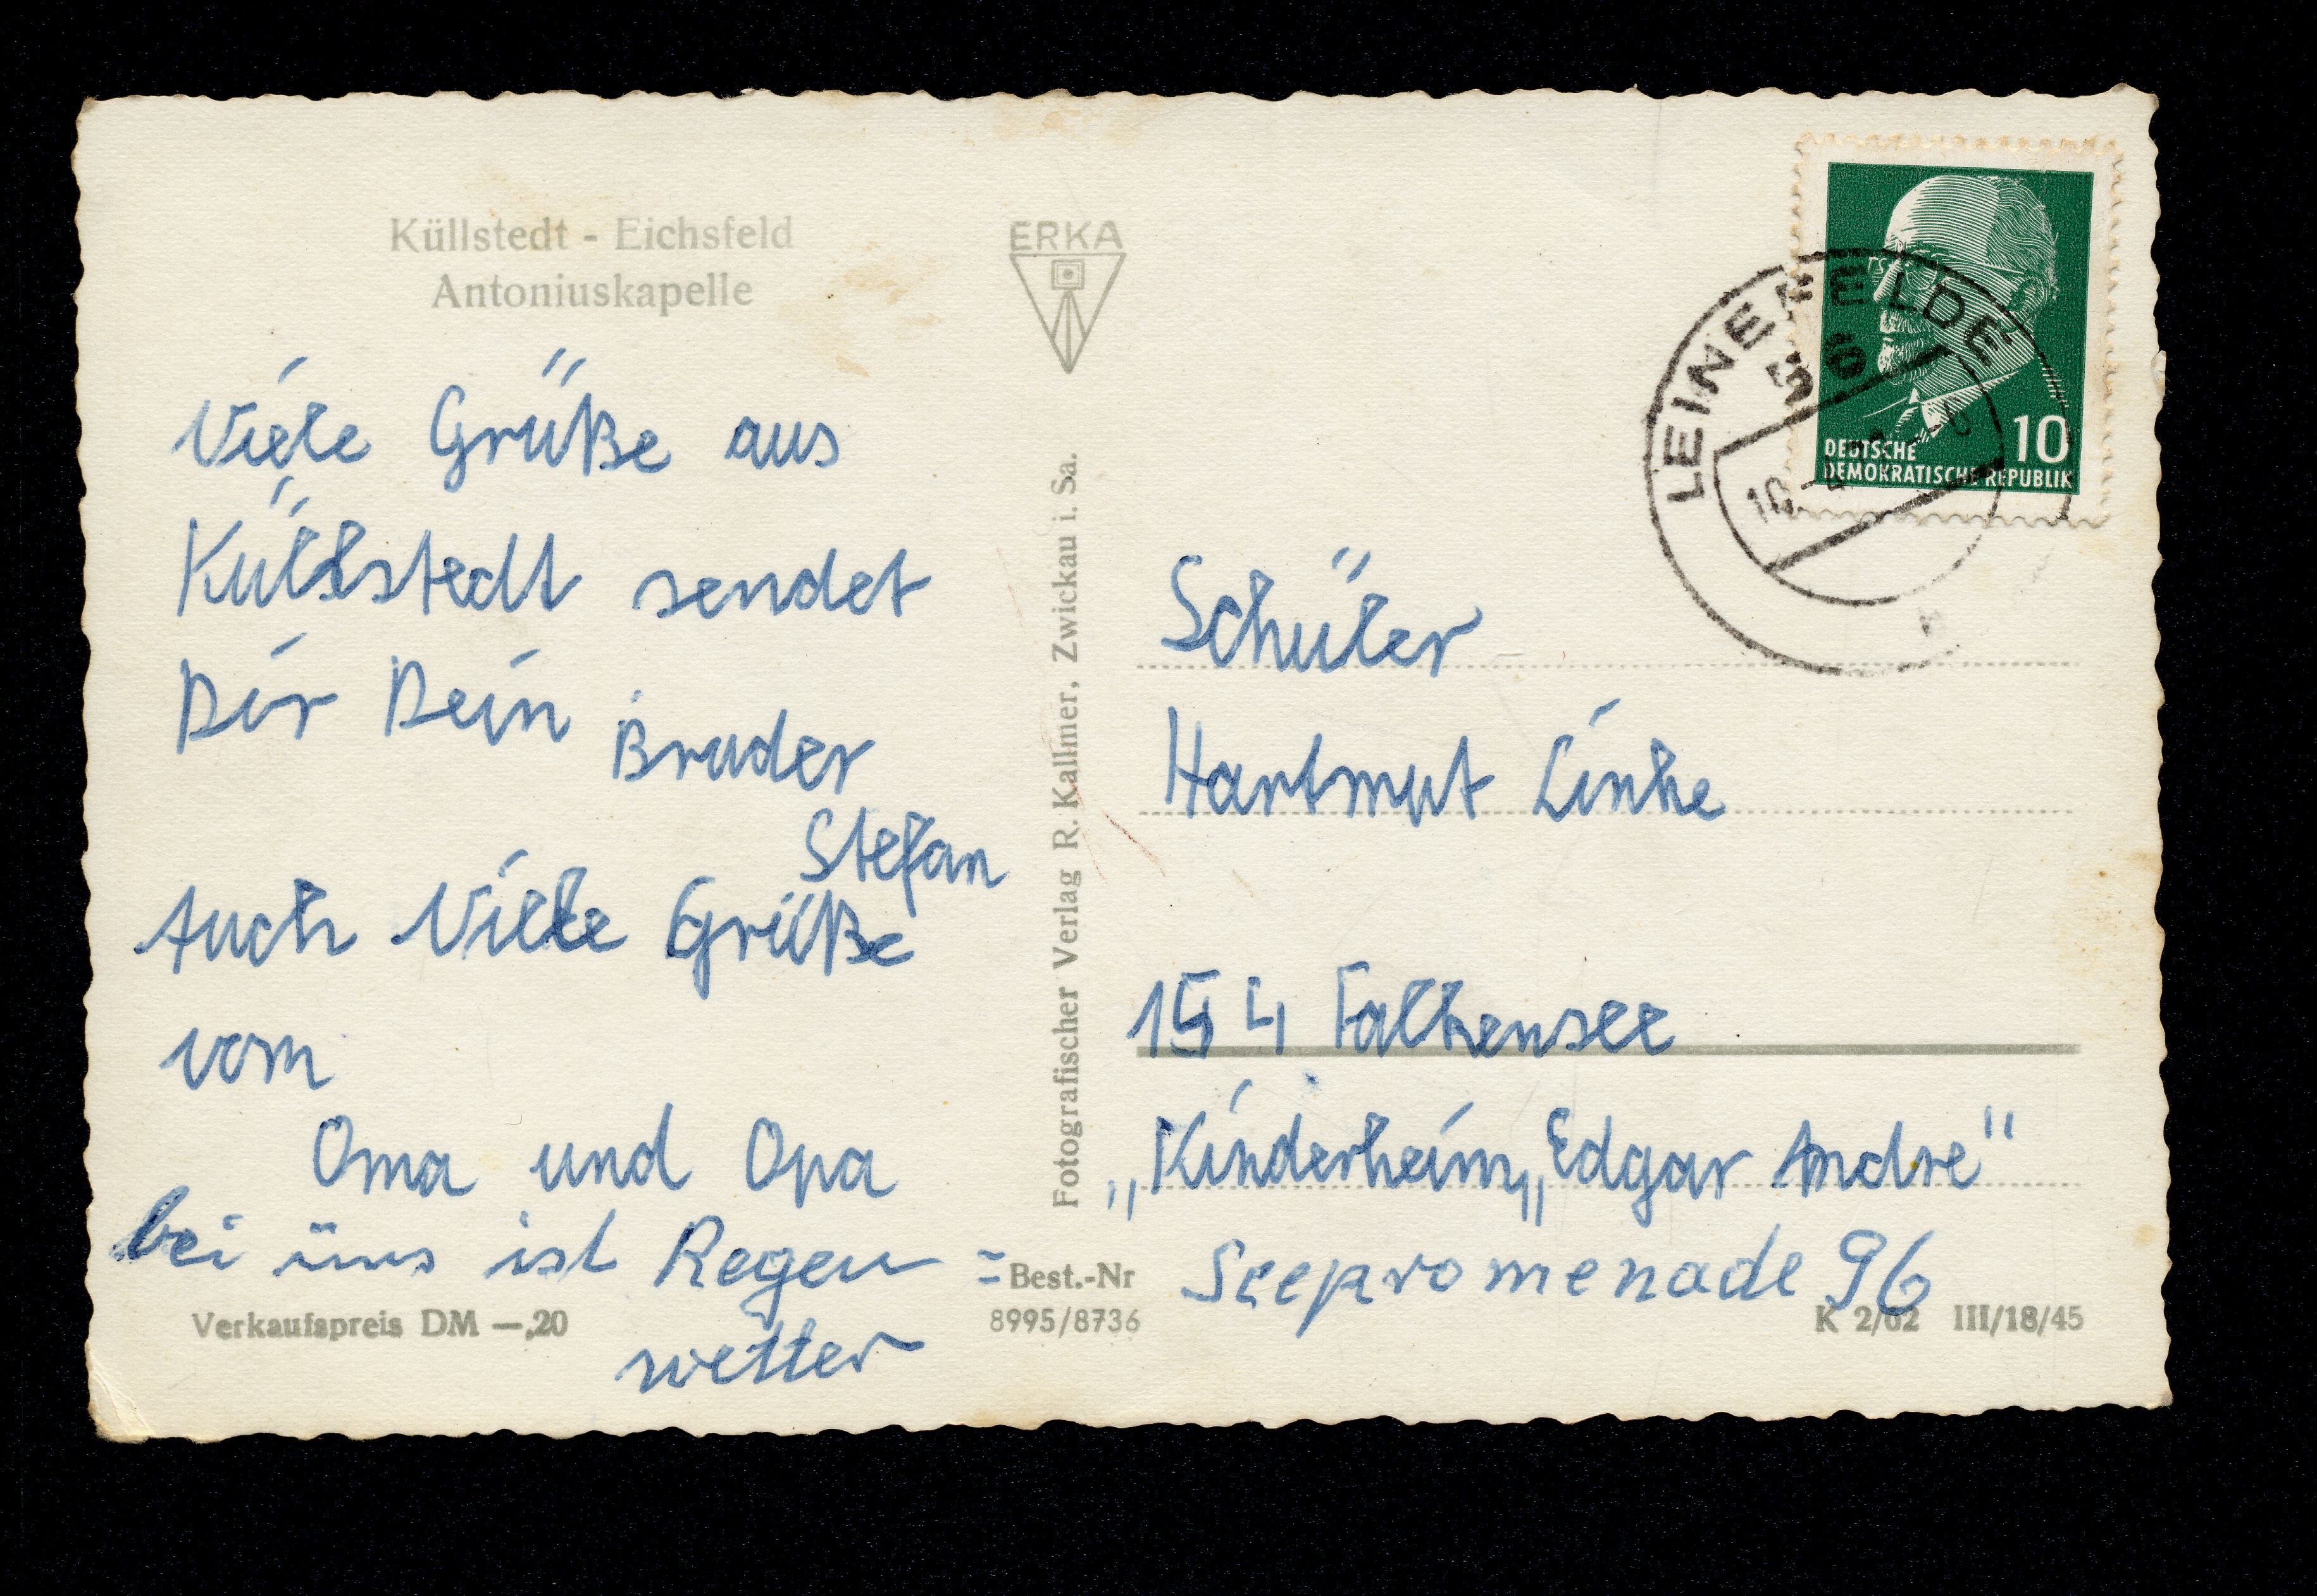 Küllstedt - Eichsfeld
Antoniuskapelle
Viele Grüße aus
Küllstedt sendet
Dir Dein Bruder
Stefan
Auch Viele Grüße
vom
Oma und Opa
bei uns ist Regen =
wetter
Verkaufspreis DM —,20
ERKA
Fotografischer Verlag R. Kallmer, Zwickau i. Sa.
Best.-Nr
8995/8736
DEUTSCHE
DEMOKRATISCHE REPUBLIK
10
LEINEFELDE
Schüler
Hartmut Linke
154 Falkensee
„Kinderheim„Edgar Andre"
Seepromenade 96
K 2/62 III/18/45